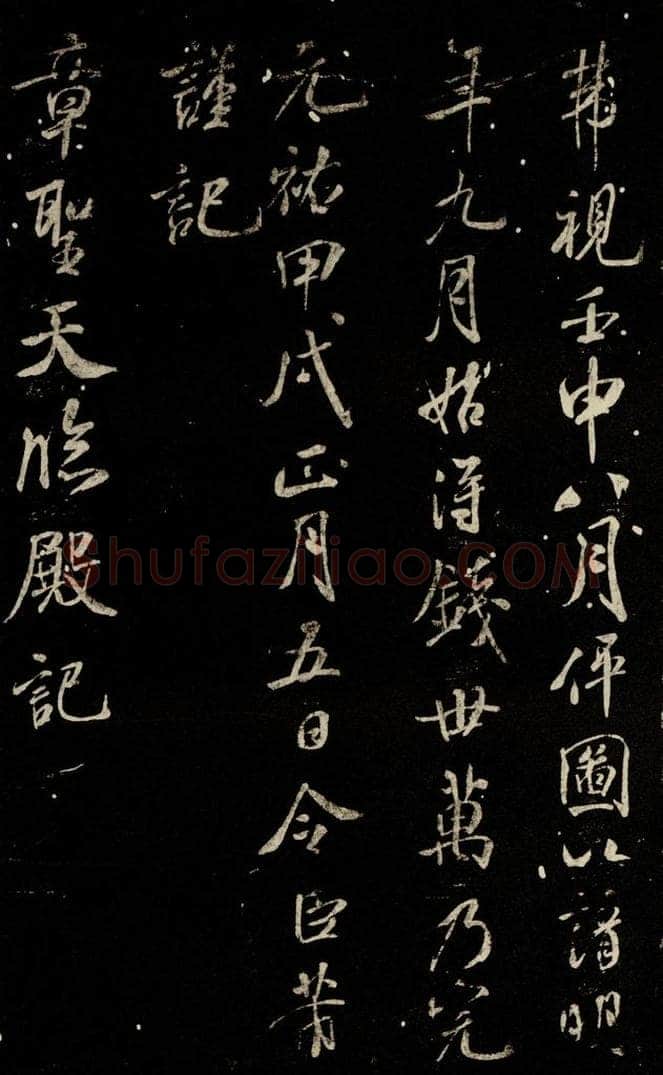 芾視壬申八月伻圖以請明
年九月始得錢丗萬乃完
元祐甲戌正月五日令臣芾
謹記
章聖天臨殿記
Shufaziliao.COM